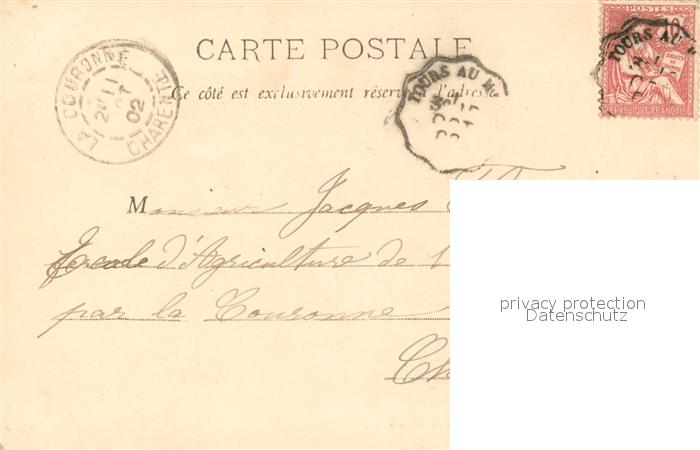 CARTE POSTALE
Ce côté est exclusivement réservé l'adresse
LA COURONNE
11
02
CHARENTE
TOURS AU
POSTES
10
TOURS AU
RÉPUBLIQUE FRANÇAISE
Monsieur Jacques
d'Agriculture de
par la Couronne
privacy protection
Datenschutz